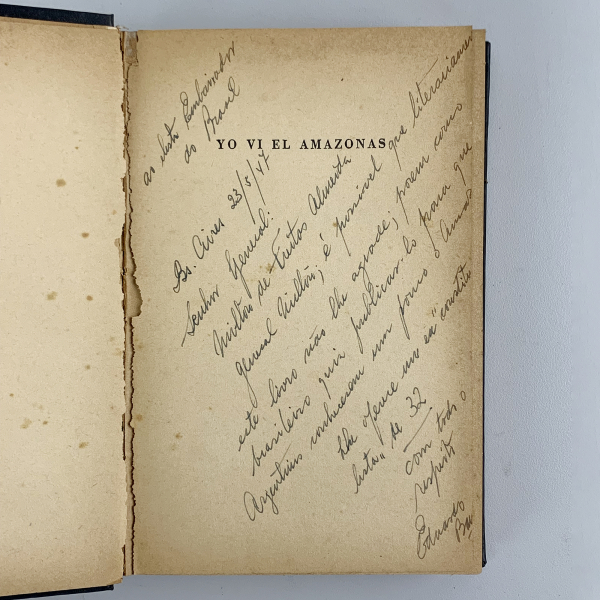 YO VI EL AMAZONAS
ao Embaixador
do Brasil
Bs. Aires 23/5/47
Senhor General:
Milton de Freitas Almeida
general é possivel que literariamente
este livro não lhe agrade; porem como
brasileiro quiz publicar-lo para que
Argentinos conhecessem um pouco o Amazonas
lhe oferece um ex "constitu
lista" de 32
com todo o
respeito
Eduardo